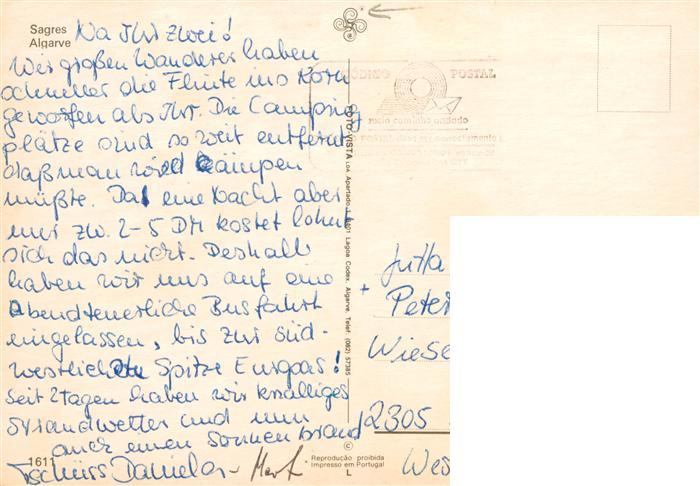 Sagres
Algarve
Na Ihr zwei!
Wir großen Wanderer haben
schneller die Flinte ins Korn
geworfen als Ihr. Die Camping
plätze sind so weit entfernt
daßman wild kämpen
müßte. Da eine Nacht aber
nur zw. 2-5 DM kostet lohnt
sich das nicht. Deshalb
haben wir uns auf eine
Abendteuerliche Busfahrt
eingelassen, bis zur süd-
westlichsten Spitze Europas!
Seit 2 Tagen haben wir knalliges
Strandwetter und nun
auch einen Sonnenbrand
Tschüss Daniela -
1611
FOTO-VISTA LDA. Apartado, 8401 Lagoa Codex, Algarve, Telef. (082) 57365
CÓDIGO POSTAL
meio caminho andado
Jutta
+ Peter
Wiese
2305
Wes
©
Reprodução proibida
Impresso em Portugal
L